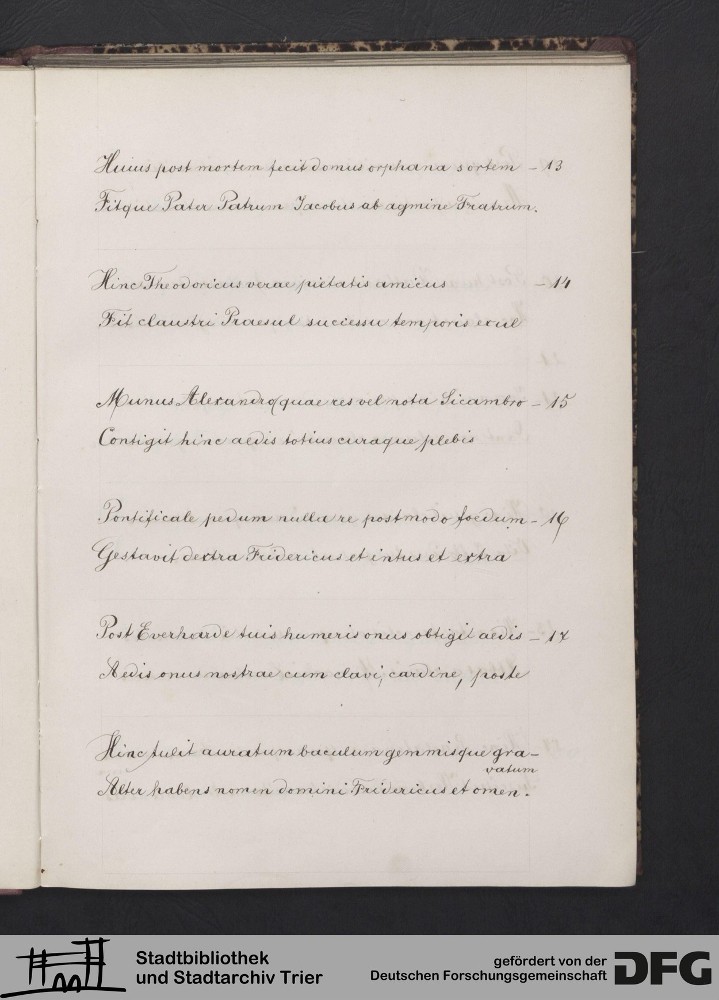 Huius post mortem fecit domus orphana sortem – 13
Fitque Pater Patrum Jacobus ab agmine Fratrum.
Hinc Theodoricus verae pietatis amicus – 14
Fit claustri Praesul successu temporis exul
Munus Alexandro (quae res vel nota Sicambro – 15
Contigit hinc aedis totius curaque plebis
Pontificale pedum nulla re postmodo foedum – 16
Gestavit dextra Fridericus et intus et extra
Post Everharde tuis humeris onus obtigit aedis – 17
Aedis onus nostrae cum clavi, cardine, poste
Hinc tulit auratum baculum gemmisque gra–
vatum
Alter habens nomen domini Fridericus et omen.
Stadtbibliothek
und Stadtarchiv Trier
gefördert von der
Deutschen Forschungsgemeinschaft
DFG